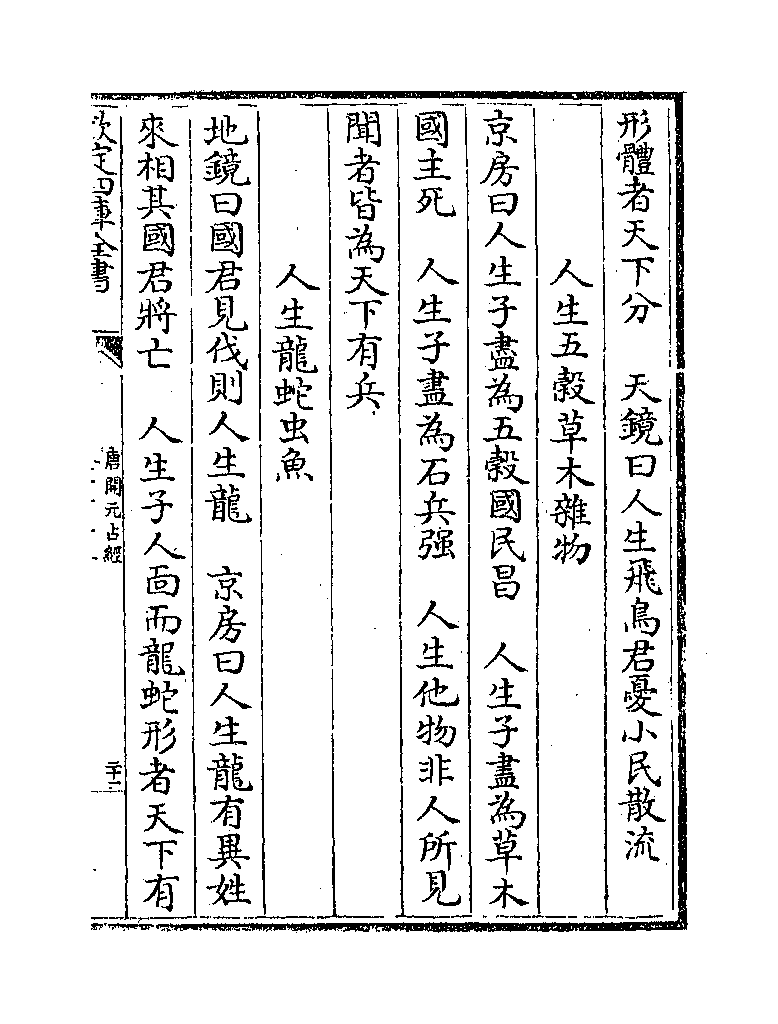 形體者天下分　天鏡曰人生飛鳥君憂小民散流
人生五穀草木雜物
京房曰人生子盡為五穀國民昌　人生子盡為草木
國主死　人生子盡為石兵强　人生他物非人所見
聞者皆為天下有兵
人生龍蛇虫魚
地鏡曰國君見伐則人生龍　京房曰人生龍有異姓
來相其國君將亡　人生子人面而龍蛇形者天下有
欽定四庫全書
唐開元占經